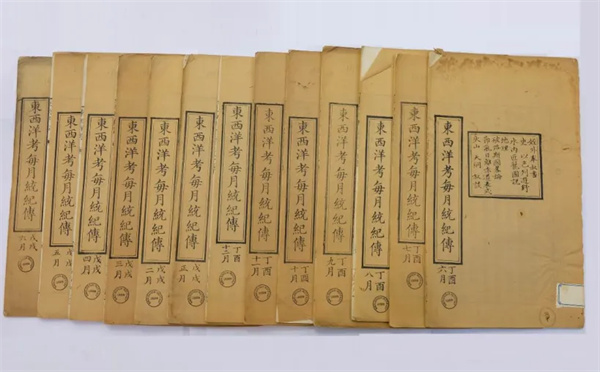 史
地理
火山
東西洋考每月統紀傳
丁酉
六月
東西洋考每月統紀傳
丁酉
七月
東西洋考每月統紀傳
丁酉
八月
東西洋考每月統紀傳
丁酉
九月
東西洋考每月統紀傳
丁酉
十月
東西洋考每月統紀傳
丁酉
十一月
東西洋考每月統紀傳
丁酉
十二月
東西洋考每月統紀傳
戊戌
正月
東西洋考每月統紀傳
戊戌
二月
東西洋考每月統紀傳
戊戌
三月
東西洋考每月統紀傳
戊戌
四月
東西洋考每月統紀傳
戊戌
五月
東西洋考每月統紀傳
戊戌
六月